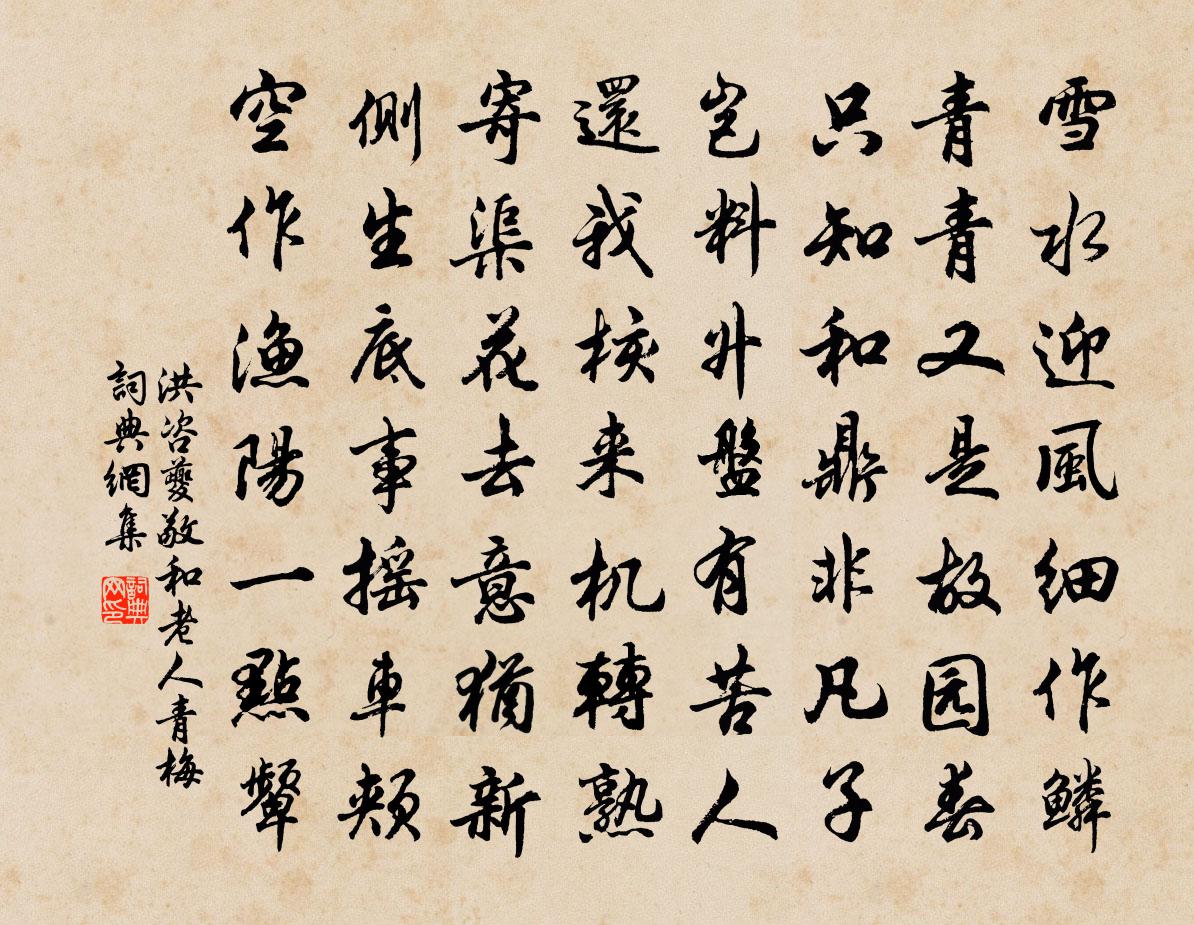 雪水迎風細作鱗
青青又是故园春
只知和鼎非凡子
豈料升盤有苦人
還我核来机轉熟
寄渠花去意猶新
側生底事摇車頰
空作漁陽一點顰
洪咨夔敬和老人青梅
詞典網集
詞典网印